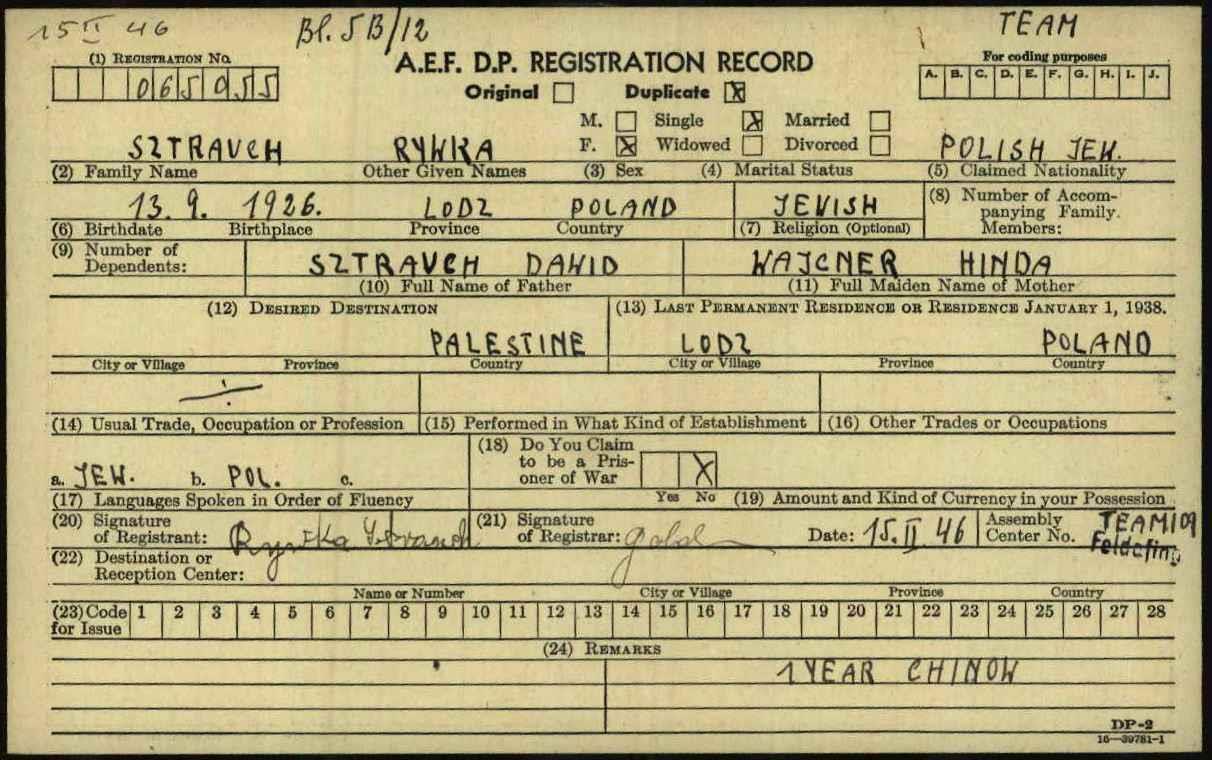 15 II 46 Bl. 5 B/12 TEAM
(1) REGISTRATION No. A.E.F. D.P. REGISTRATION RECORD For coding purposes
065955 Original Duplicate X A. B. C. D. E. F. G. H. I. J.
M. Single X Married
F. X Widowed Divorced
SZTRAUCH RYWKA POLISH JEW.
(2) Family Name Other Given Names (3) Sex (4) Marital Status (5) Claimed Nationality
13. 9. 1926. LODZ POLAND JEVISH (8) Number of Accompanying Family Members:
(6) Birthdate Birthplace Province Country (7) Religion (Optional)
(9) Number of Dependents: SZTRAUCH DAWID WAJCNER HINDA
(10) Full Name of Father (11) Full Maiden Name of Mother
(12) DESIRED DESTINATION (13) LAST PERMANENT RESIDENCE OR RESIDENCE JANUARY 1, 1938.
PALESTINE LODZ POLAND
City or Village Province Country City or Village Province Country
(14) Usual Trade, Occupation or Profession (15) Performed in What Kind of Establishment (16) Other Trades or Occupations
a. JEW. b. POL. c. (18) Do You Claim to be a Prisoner of War X
(17) Languages Spoken in Order of Fluency Yes No (19) Amount and Kind of Currency in your Possession
(20) Signature of Registrant: Rywka (21) Signature of Registrar: Date: 15. II 46 Assembly Center No. TEAM 109 Feldafing
(22) Destination or Reception Center:
Name or Number City or Village Province Country
(23) Code for Issue 1 2 3 4 5 6 7 8 9 10 11 12 13 14 15 16 17 18 19 20 21 22 23 24 25 26 27 28
(24) REMARKS
1 YEAR CHINOW
DP-2
16—39781-1